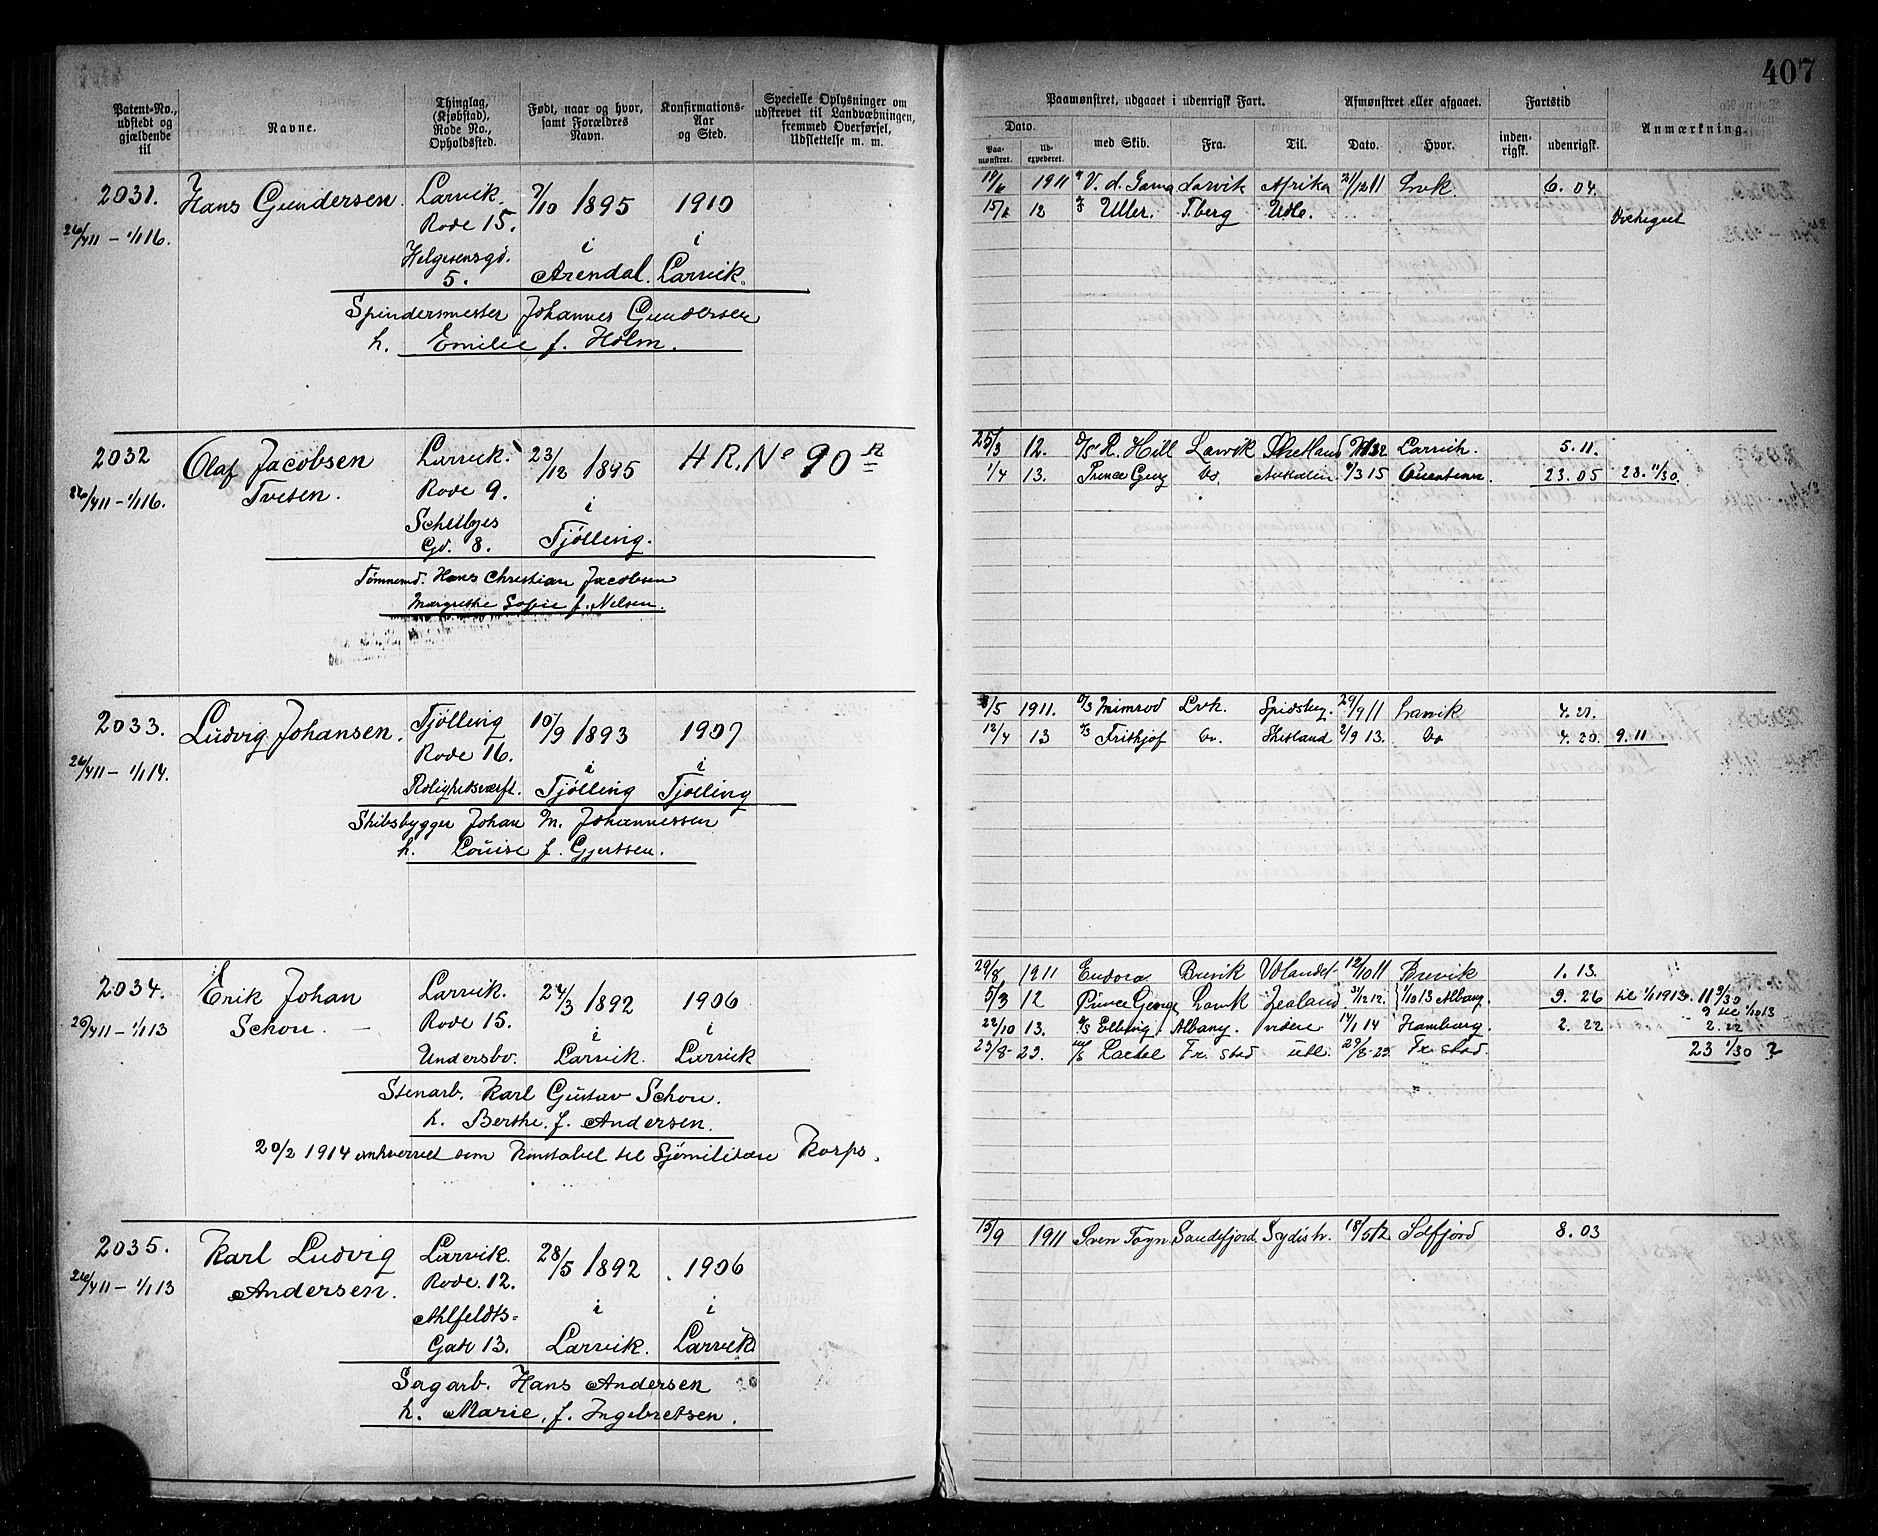 407
Patent-No., udstedt og gjældende til
Navne.
Thinglag, (Kjøbstad), Rode No., Opholdssted.
Født, naar og hvor, samt Forældres Navn.
Konfirmations-Aar og Sted.
Specielle Oplysninger om udskrevet til Landværnningen, fremmed Overførsel, Udslettelse m. m.
Paamønstret, udgaaet i udenrigsk Fart.
Afmønstret eller afgaaet.
Fartstid
Anmærkning.
Dato.
Paa-mønstret.
Ud-expederet.
med Skib.
Fra.
Til.
Dato.
Hvor.
inden-rigsk.
udenrigsk.
2031. Hans Gundersen. Larvik. 7/10 1895 1910
Rode 15.
26/4 11 – 1/1 16.
Helgesensgd. i i
5. Arendal. Larvik.
Spindermester Johannes Gundersen
h. Emilie f. Holm.
1911 V. d. Gama Larvik Afrika 21/12 11 Lrvk 6. 04
12 Uller. T.berg Udl.
2032 Olaf Jacobsen Larvik. 23/12 1895 H R. No 90
Tvesen. Rode 9.
26/4 11 – 1/1 16.
Schelbyes i
Gd. 8. Tjølling.
Tømmermd. Hans Christian Jacobsen
Margrethe Sofie f. Nelsen.
25/3 12. R. Hill Larvik Shetland Larvik. 5. 11.
1/4 13. Prince Georg Do. 9/3 15 23. 05 28. 11/30.
2033. Ludvig Johansen. Tjølling 10/9 1893 1907
Rode 16.
26/4 11 – 1/1 14.
i i
Rolighedsværft. Tjølling Tjølling
Skibsbygger Johan M. Johannessen
h. Louise f. Gjertsen.
3/5 1911. Nimrod Lvk. Spidsbg. 29/9 11 Larvik 4. 21.
12/4 13 Frithjof Do. Shetland 2/9 13. Do 4. 20. 9. 11
2034. Erik Johan Larvik. 24/3 1892 1906
Schou. Rode 15. i i
26/4 11 – 1/1 13
Undersbo. Larvik. Larvik
Stenarb. Karl Gustav Schou.
h. Berthe. f. Andersen.
20/2 1914 omhvervet som Konstabel til Sjømilitære Korps.
29/8 1911 Eudora Brevik Udlandet 12/10 11 Brevik 1. 13.
5/3 12 Prince George Larvik Zealand 31/12 12. 1/10 13 Albany. 9. 26 til 1/1 1913. 11 9/30
22/10 13. Ellwig. Albany. videre 14/1 14 Hamburg. 2. 22 2. 22
23/8 23. Fr. stad utl. 29/8-23. Fr. stad. 23 1/30 ?
2035. Karl Ludvig Larvik. 28/5 1892 1906
Andersen. Rode. 12.
26/4 11 – 1/1 13
Ahlfeldts- i i
Gade 13. Larvik. Larvik
Sagarb. Hans Andersen
h. Marie, f. Ingebretsen.
15/9 1911 Sven Foyn Sandefjord Sydish. 18/5 12 Sdfjord 8. 03